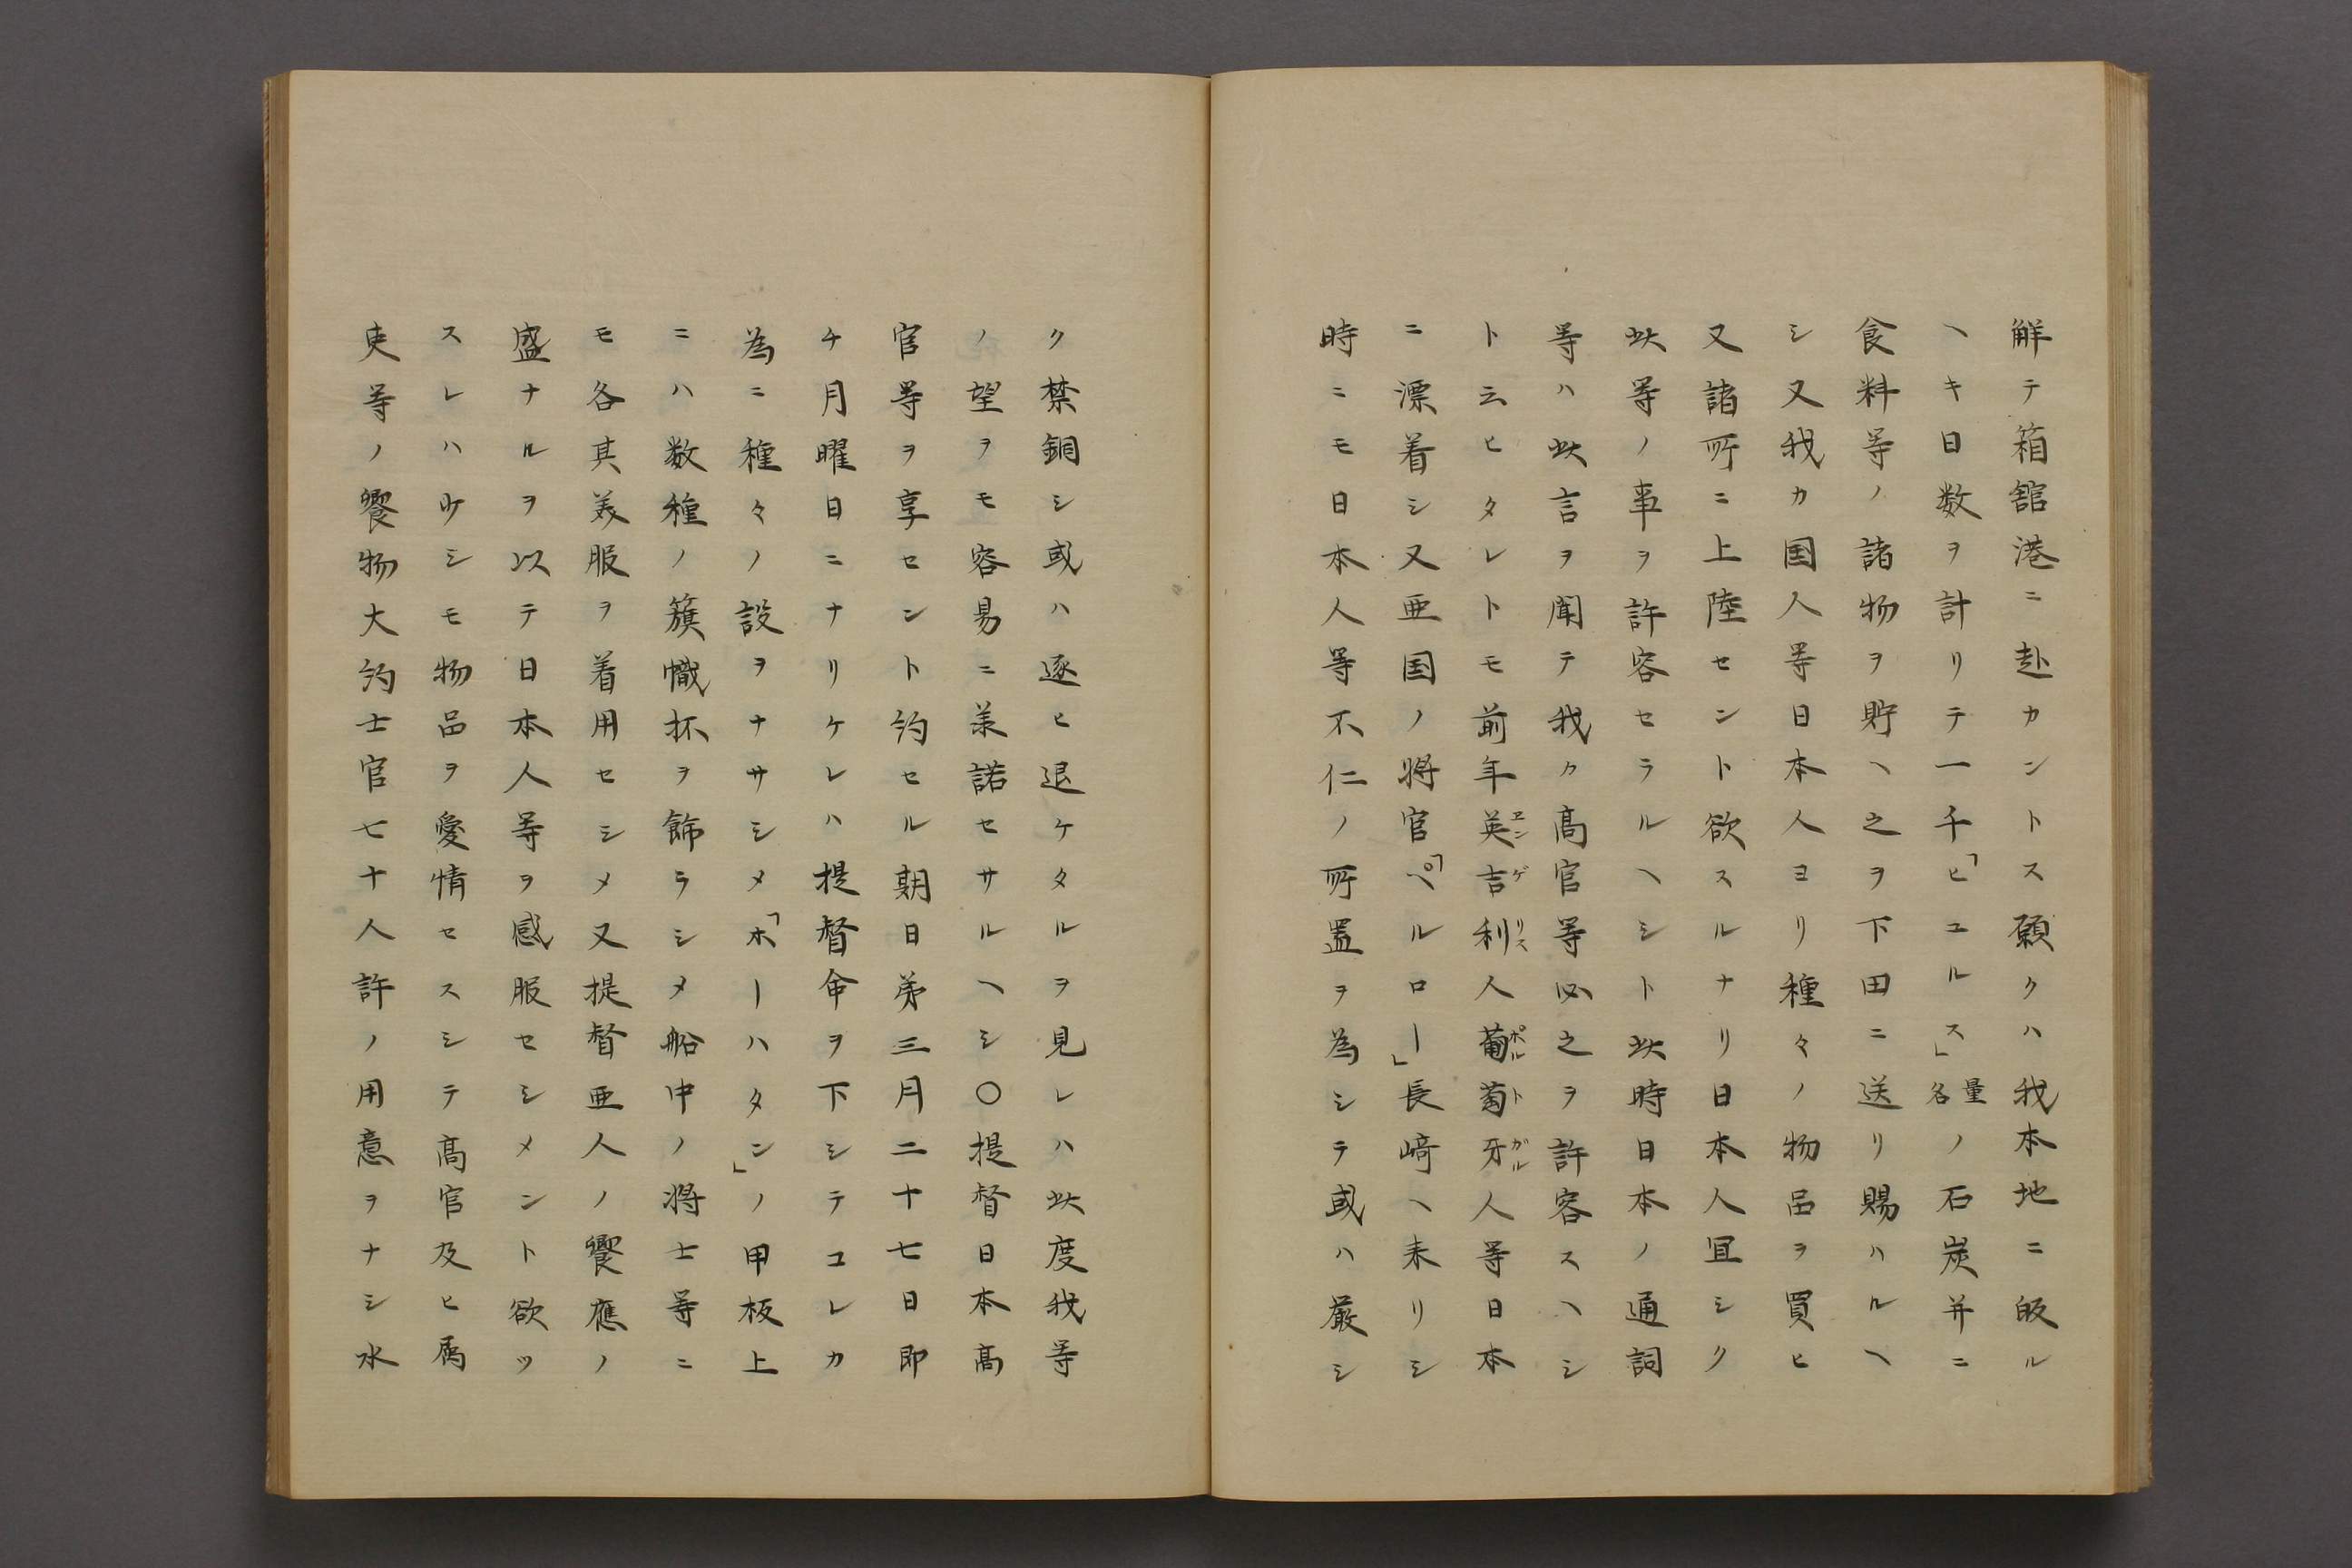 解テ箱舘港ニ赴カントス願クハ我本地ニ皈ル
ヘキ日数ヲ計リテ一千「ヒユルス」量名ノ石炭并ニ
食料等ノ諸物ヲ貯ヘ之ヲ下田ニ送リ賜ハルヘ
シ又我カ国人等日本人ヨリ種々ノ物品ヲ買ヒ
又諸所ニ上陸セント欲スルナリ日本人宜シク
此等ノ事ヲ許容セラルヘシト此時日本ノ通詞
等ハ此言ヲ聞テ我カ高官等必之ヲ許容スヘシ
ト云ヒタレトモ前年英吉利人葡萄牙人等日本
ニ漂着シ又亜国ノ将官「ペルロー」長崎ヘ来リシ
時ニモ日本人等不仁ノ所置ヲ為シテ或ハ厳シ
ク禁錮シ或ハ逐ヒ退ケタルヲ見レハ此度我等
ノ望ヲモ容易ニ羕諾セサルヘシ〇提督日本高
官等ヲ享セント約セル朝日第三月二十七日即
チ月曜日ニナリケレハ提督命ヲ下シテコレカ
為ニ種々ノ設ヲナサシメ「ホーハタン」ノ甲板上
ニハ数種ノ籏幟抔ヲ飾ラシメ船中ノ将士等ニ
モ各其美服ヲ着用セシメ又提督亜人ノ饗應ノ
盛ナルヲ以テ日本人等ヲ感服セシメント欲ッ
スレハ少シモ物品ヲ愛情セスシテ高官及ヒ属
吏等ノ饗物大約士官七十人許ノ用意ヲナシ水